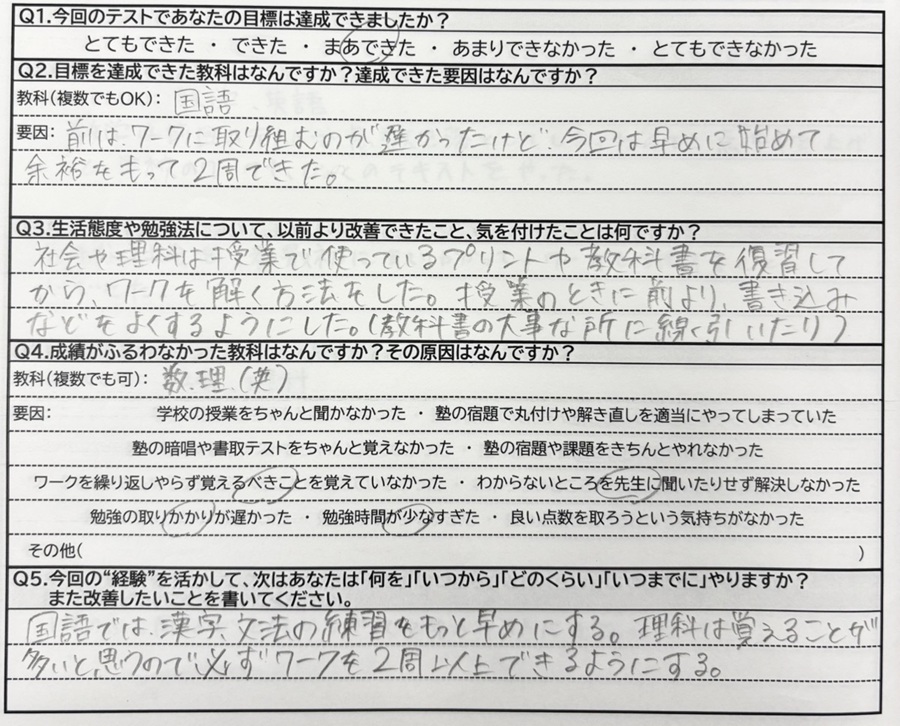 Q1.今回のテストであなたの目標は達成できましたか？
とてもできた ・ できた ・ まあできた ・ あまりできなかった ・ とてもできなかった
Q2.目標を達成できた教科はなんですか？達成できた要因はなんですか？
教科(複数でもOK)： 国語
要因： 前は、ワークに取り組むのが遅かったけど、今回は早めに始めて
余裕をもって2周できた。
Q3.生活態度や勉強法について、以前より改善できたこと、気を付けたことは何ですか？
社会や理科は授業で使っているプリントや教科書を復習して
から、ワークを解く方法をした。授業のときに前より、書き込み
などをよくするようにした。(教科書の大事な所に線く引いたり)
Q4.成績がふるわなかった教科はなんですか？その原因はなんですか？
教科(複数でも可)： 数.理.(英)
要因： 学校の授業をちゃんと聞かなかった ・ 塾の宿題で丸付けや解き直しを適当にやってしまっていた
塾の暗唱や書取テストをちゃんと覚えなかった ・ 塾の宿題や課題をきちんとやれなかった
ワークを繰り返しやらず覚えるべきことを覚えていなかった ・ わからないところを先生に聞いたりせず解決しなかった
勉強の取りかかりが遅かった ・ 勉強時間が少なすぎた ・ 良い点数を取ろうという気持ちがなかった
その他( )
Q5.今回の“経験”を活かして、次はあなたは「何を」「いつから」「どのくらい」「いつまでに」やりますか？
また改善したいことを書いてください。
国語では、漢字、文法の練習をもっと早めにする。理科は覚えることが
多いと思うので必ずワークを2周以上できるようにする。